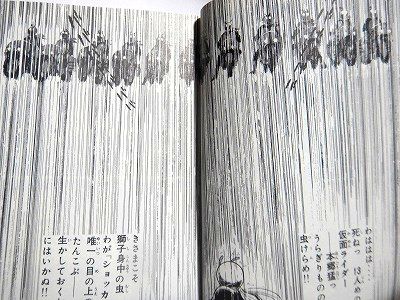 わははは‥‥
死ねっ 13人めの
仮面ライダー
本郷猛っ
うらぎりものの
虫けらめ!!
きさまこそ
獅子身中の虫
わが「ショッカ
唯一の目の上
たんこぶ
生かしておく
にはいかぬ!!
ババババ
ババババ